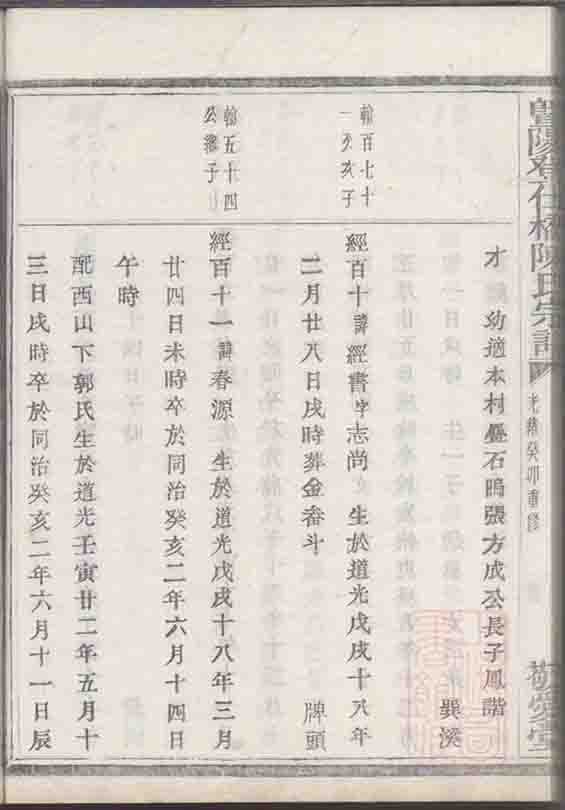 暨陽孝仕橋陳氏宗譜
光緒癸卯重修
敬愛堂
才 幼適本村疊石塢張方成公長子鳳諧
巽溪
翰百七十
一公亥子
經百十諱經書字志尚 生於道光戊戌十八年
二月廿八日戌時葬金畚斗
牌頭
翰五十四
公繼子
經百十一諱春源 生於道光戊戌十八年三月
廿四日未時卒於同治癸亥二年六月十四日
午時
配西山下郭氏生於道光壬寅廿二年五月十
三日戌時卒於同治癸亥二年六月十一日辰